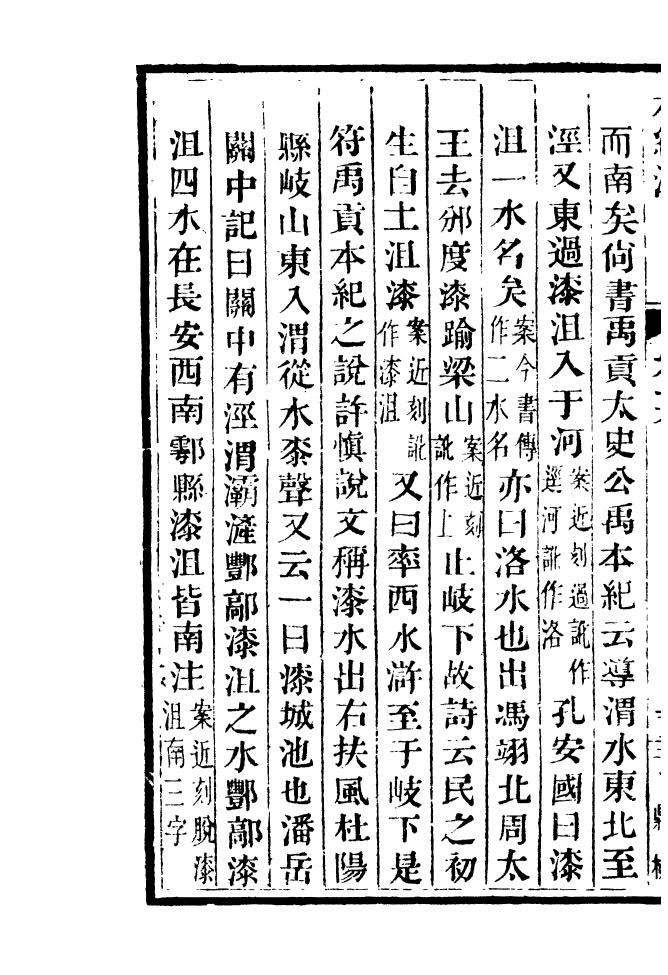 而南矣尙書禹貢太史公禹本紀云導渭水東北至
涇又東過漆沮入于河案近刻過訛作逕河訛作洛孔安國曰漆
沮一水名矣案今書傳作二水名亦曰洛水也出馮翊北周太
王去邠度漆踰梁山案近刻訛作上止岐下故詩云民之初
生自土沮漆案近刻訛作漆沮又曰率西水滸至于岐下是
符禹貢本紀之說許愼說文稱漆水出右扶風杜陽
縣岐山東入渭從水桼聲又云一曰漆城池也潘岳
關中記曰關中有涇渭灞滻酆鄗漆沮之水酆鄗漆
沮四水在長安西南鄠縣漆沮皆南注案近刻脫漆沮南三字